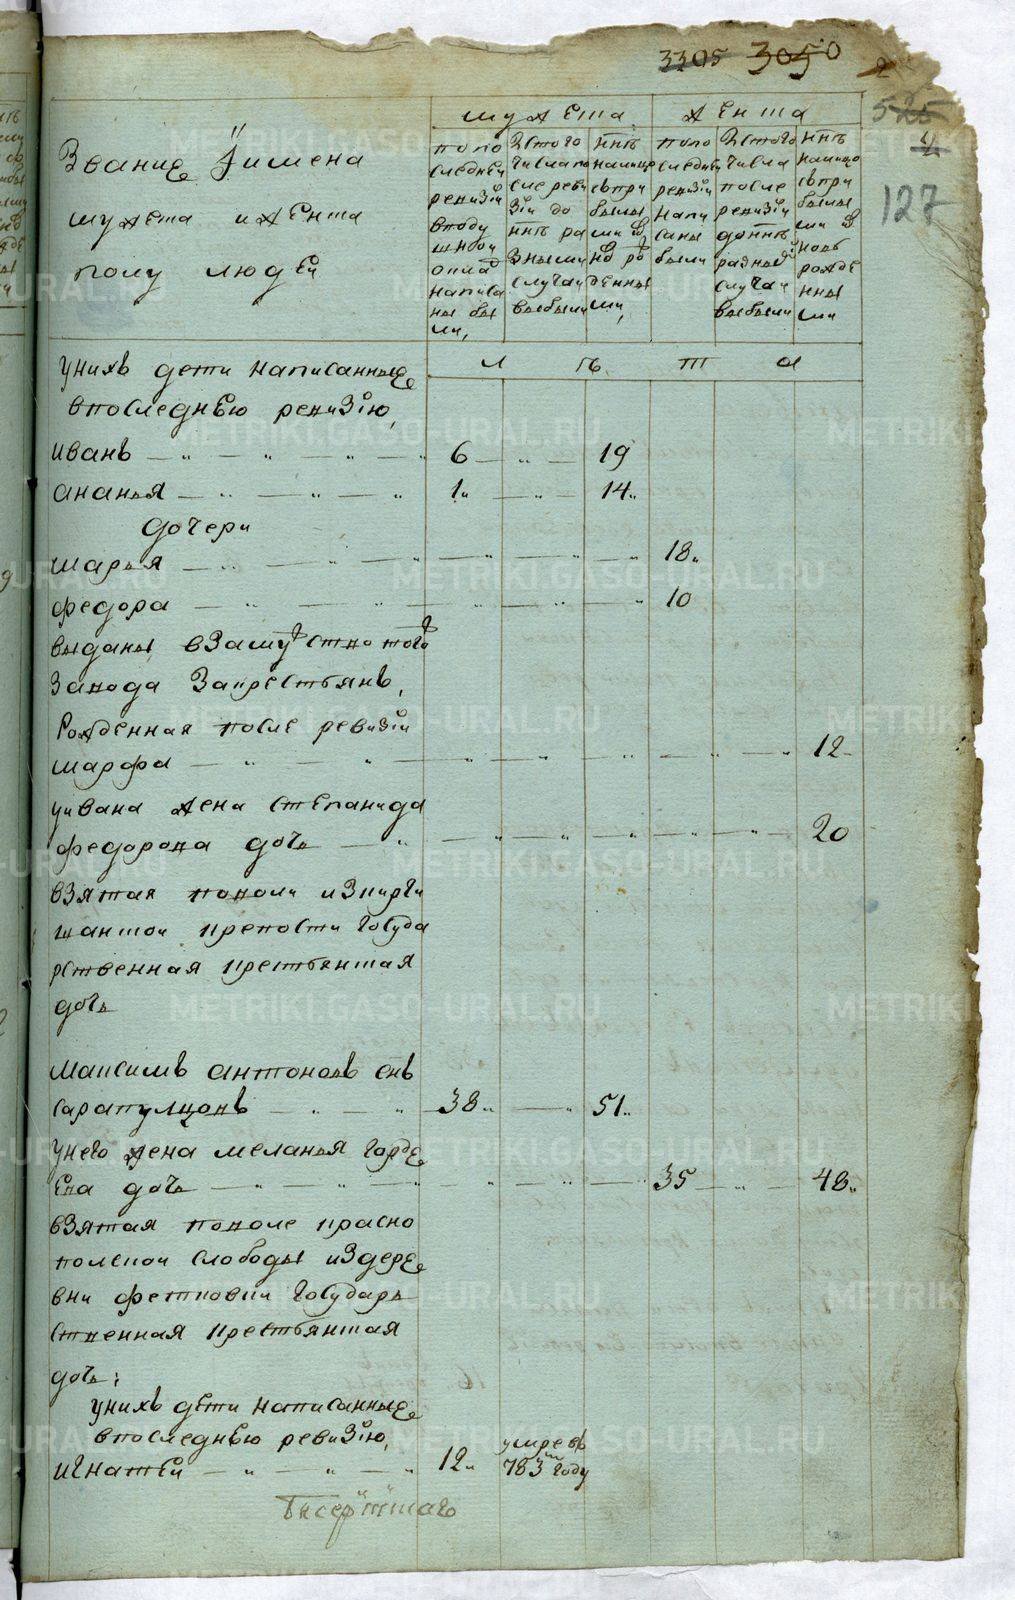 3305 3050
2
525
4
127
Звание Ӥимена
мужеска иженска
полу людеи
мужеска
женска
попо
следнеи
ревизiи
вподу
шнои
окла
написа
ны бы
ли,
Iстого
числа по
сле реви
зiи до
ннѣ ра
зными
случаи
выбыли
ннѣ
налицо
спри
былы
ми и в
но ро
жденны
ми,
попо
следнеи
ревизiи
напи
саны
были
Iстого
числа
после
ревизiи
доннѣ
разныѣ
случаи
выбыли
ннѣ
налицо
спри
былы
ми ив
новь
рожде
нны
ми
л ѣ т а
унихъ дети написанные
впоследнѣю ревизiю,
иванъ 6 19
ананья 1 14
дочери
марья 18
федора 10
выданы взамуж ство того
завода закрестьянъ,
Рожденная после ревизiи
марфа 12
уивана жена степанида
федорова дочь 20
взятая поволи изкирги
шанскои крепости государ
рственная крестьянская
дочь
Максимъ антоновъ снъ
сарапулцовъ 38 51
унего жена меланья горде
ева дочь 35 48
взятая поволе красно
полскои слободы издере
вни фетковки государь
ственная крестьянская
дочь:
унихъ дети написанные
впоследнѣю ревизiю,
игнатеи 12 умре въ
783м году
Бисерт скаго
METRIKI.GASO-URAL.RU